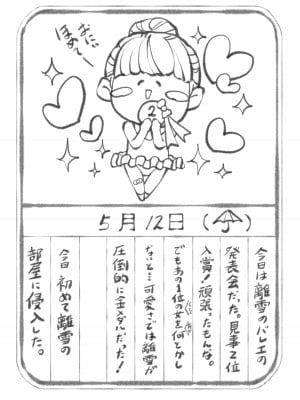 おにぃ
ほめてー
2
5月12日(☂)
今日は離雪のバレエの
発表会だった。見事2位
入賞!頑張ったもんな。
でもあの1位の女を何とかし
ないと…可愛さでは離雪が
圧倒的に金メダルだった!
今日初めて離雪の
部屋に侵入した。